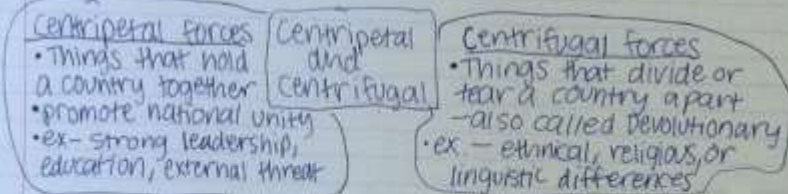 Centripetal forces
• Things that hold
a country together
• promote national unity
• ex- strong leadership,
education, external threat
Centripetal
and
Centrifugal
Centrifugal forces
• Things that divide or
tear a country apart
- also called Devolutionary
• ex. - ethnical, religious, or
linguistic differences